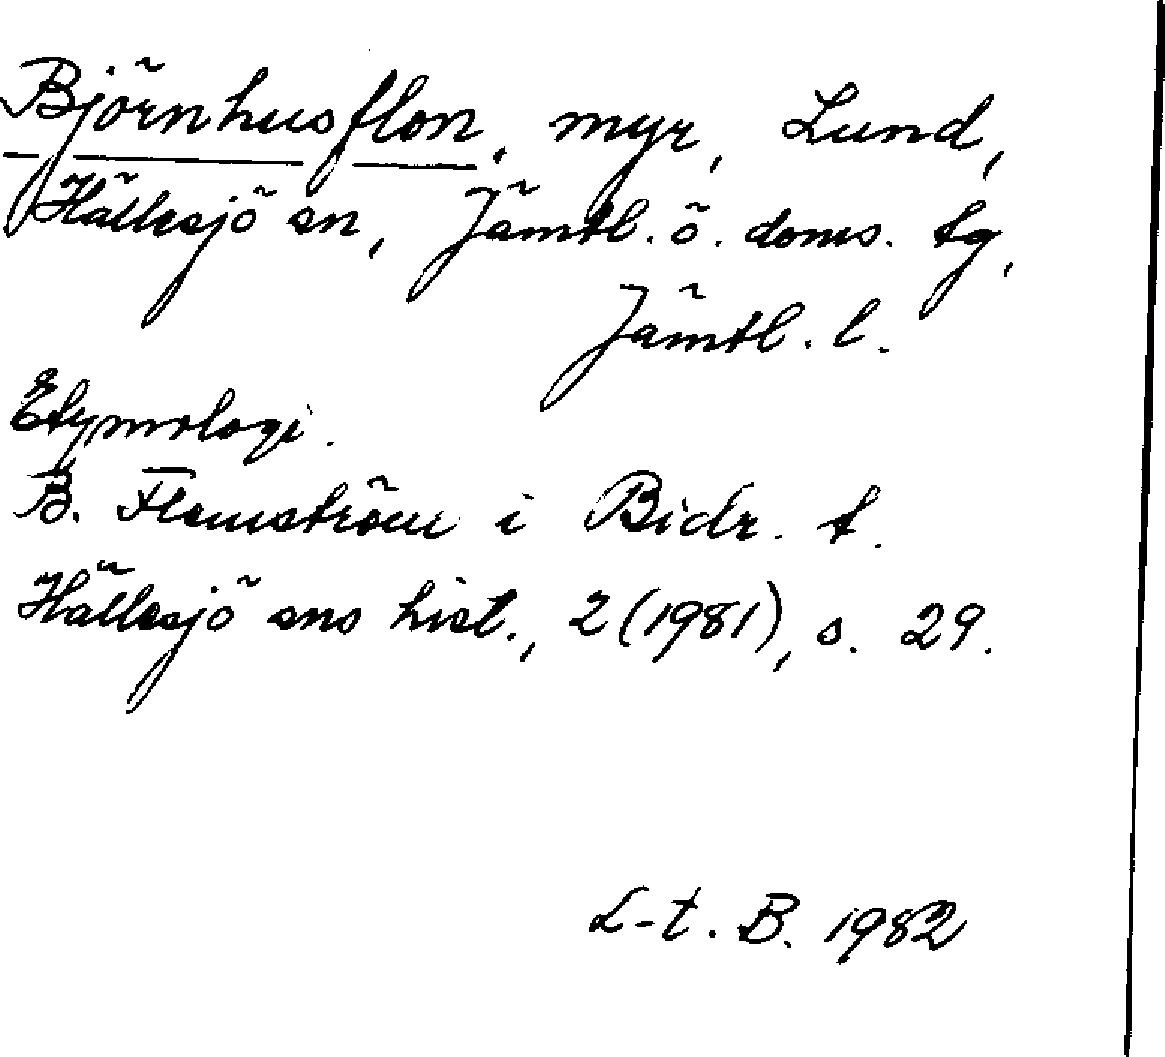 Björnhusflon, myr, Lund,
Hällesjö sn, Jämtl. ö. doms. tg,
Jämtl. l.
Etymologi.
B. Flemström i Bidr. t.
Hällesjö sns hist., 2 (1981), s. 29.
L-t. B. 1982